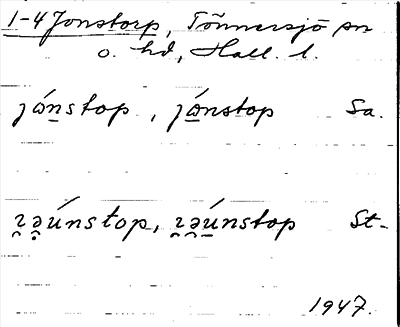 1-4 Jonstorp, Tönnersjö sn
o. hd, Hall. l.
jón̲stop, jó̲nstop Sa.
ɿ̯ə̯únstop, ɿ̯ə̯ú̲nstop St.
1947.